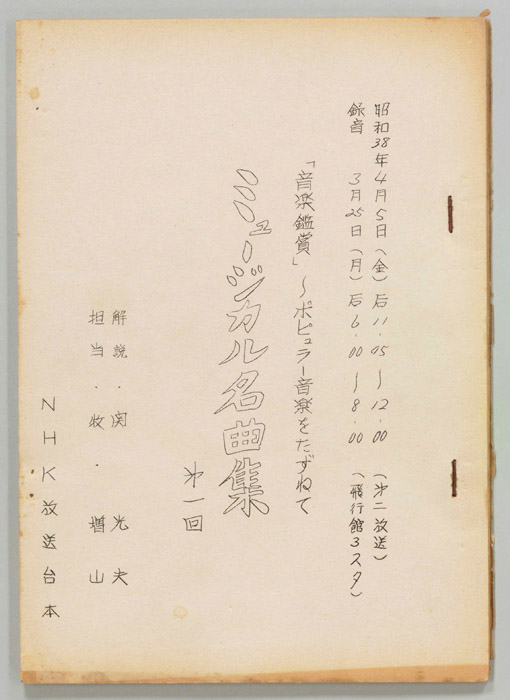 昭和38年4月5日（金）后11.05～12.00（㐧二放送）
録音 3月25日（月）后6.00～8.00（飛行館3スタ）
「音楽鑑賞」～ポピュラー音楽をたずねて
ミュージカル名曲集
㐧一回
解説・関 光夫
担当・牧・増山
NHK放送台本